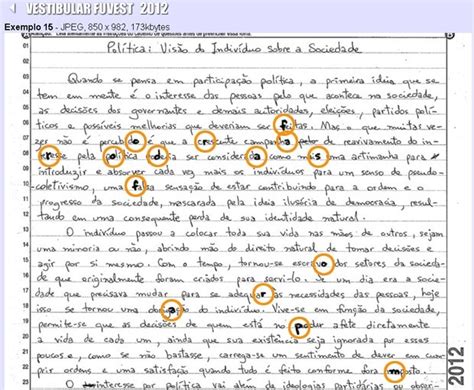 VESTIBULAR FUVEST 2012
Exemplo 15 - JPEG, 850 x 982, 173kbytes
01
02 Política: Visão do Indivíduo sobre a Sociedade
03
04 Quando se pensa em participação política, a primeira ideia que se
05 tem em mente é o interesse das pessoas pelo que acontece na sociedade,
06 as decisões dos governantes e demais autoridades, eleições, partidos polí-
07 ticos e possíveis melhorias que deveriam ser feitas. Mas o que muitas ve-
08 zes não é percebido é que a crescente campanha pelo reavivamento do in-
09 teresse pela política pode ser considerada como mais uma artimanha para
10 introduzir e absorver cada vez mais os indivíduos para um senso de pseudo-
11 coletivismo, uma falsa sensação de estar contribuindo para a ordem e o
12 progresso da sociedade, mascarada pela ideia ilusória de democracia, resul-
13 tando em uma consequente perda de sua identidade natural.
14 O indivíduo passou a colocar toda sua vida nas mãos de outros, sejam
15 uma minoria ou não, abrindo mão do direito natural de tomar decisões e
16 agir por si mesmo. Com o tempo, tornou-se escravo dos setores da socieda-
17 de que originalmente foram criados para servi-lo. Se um dia era a socie-
18 dade que precisava mudar para se adequar às necessidades das pessoas, hoje
19 isso se tornou uma do indivíduo. Vive-se em função da sociedade,
20 permite-se que as decisões de quem está no poder afete diretamente
21 a vida de cada um, ainda que sua existência seja ignorada por esses
22 poucos e, como se não bastasse, carrega-se um sentimento de dever em cum-
prir ordens e uma satisfação quando tudo é feito conforme foi imposto.
23 O interesse por política vai além de ideologias partidárias ou
2012